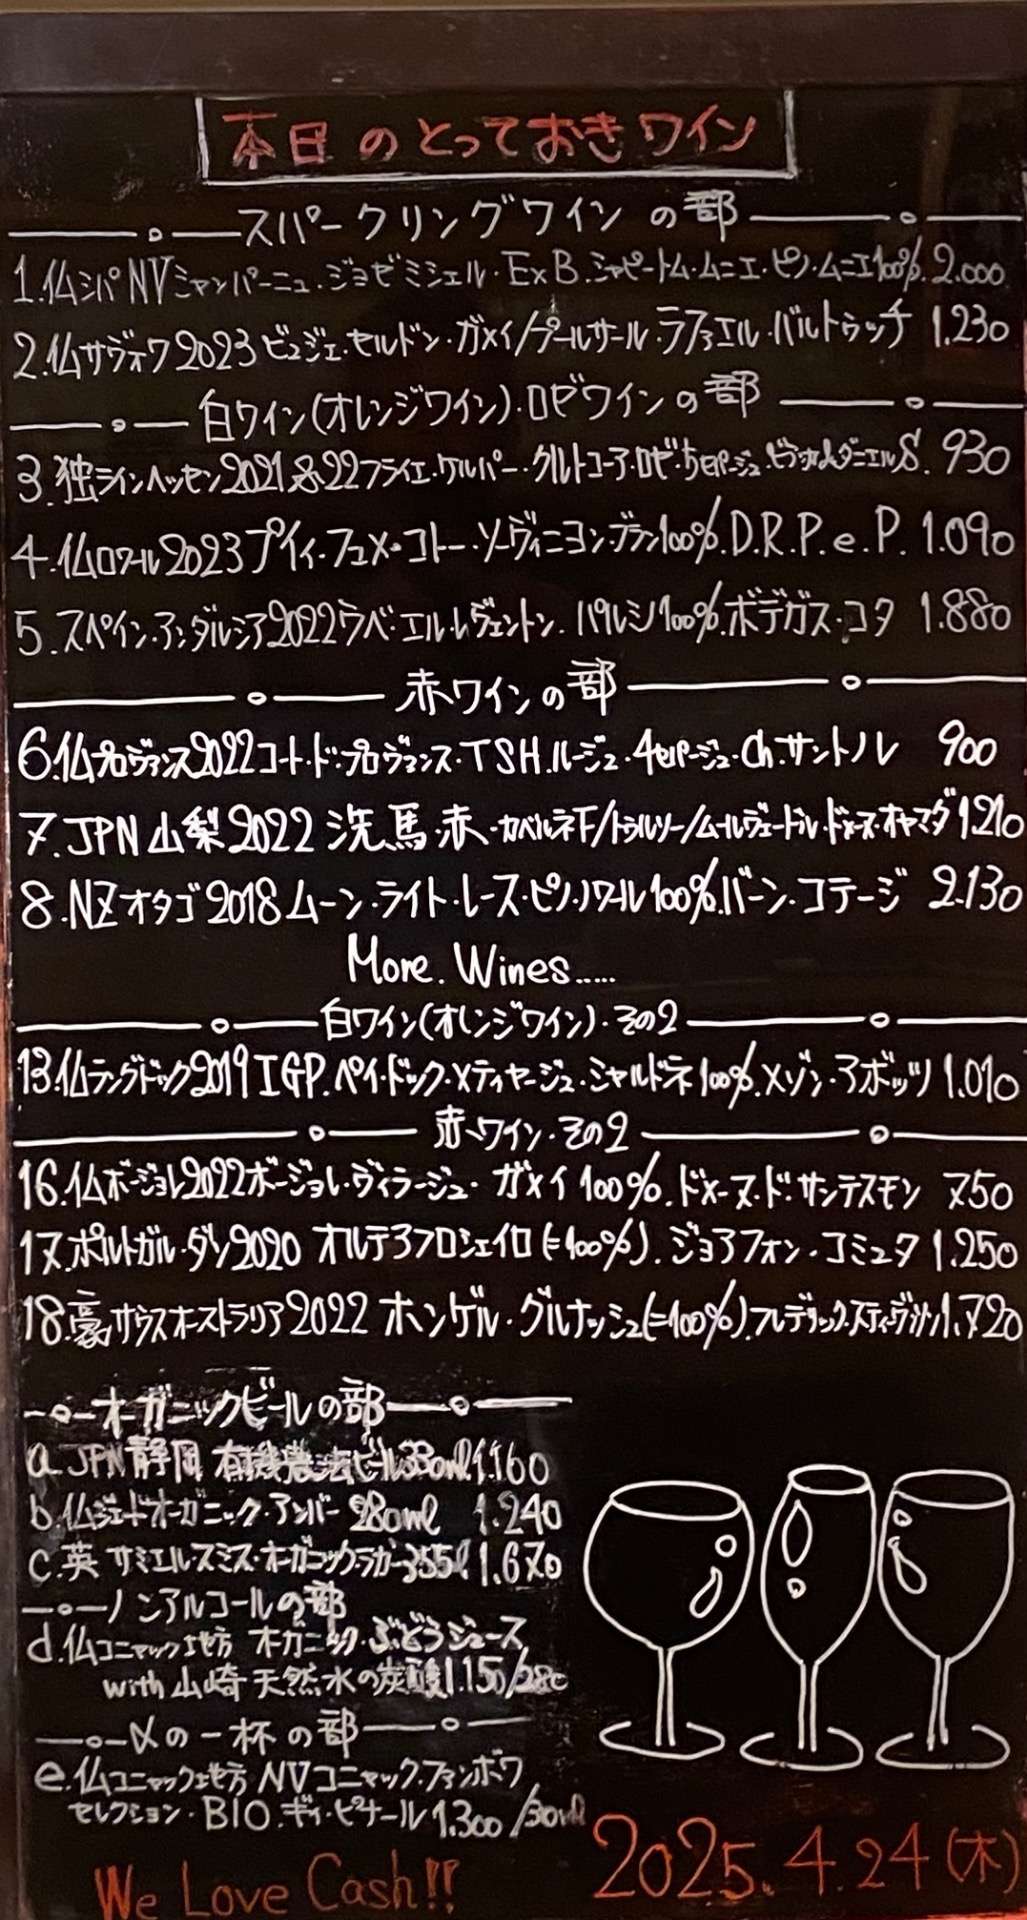 本日のとっておきワイン
スパークリングワインの部
1.仏シパNVシャンパーニュ.ジョゼミシェル.ExB.シャピートム.ムニエ.ピノ.ムニエ100%.2.000
2.仏サヴォワ2023ビュジェ.セルドン.ガメイ/プールサール.ラファエル.バルトゥッチ 1.230
白ワイン(オレンジワイン).ロゼワインの部
3.独ラインヘッセン2021&22フライエ.ケルパー.クルトコーア.ロゼ.5セパージュ. 930
4.仏ロワール2023プイィ.フュメ.コトー.ソーヴィニヨン.ブラン100%.D.R.P.e.P. 1.090
5.スペイン.アンダルシア2022ラベ.エル.レヴェントン.パルシノ100%.ボデガス.コタ 1.880
赤ワインの部
6.仏プロヴァンス2022コート.ド.プロヴァンス.TSH.ルージュ.4セパージュ.Ch.サントノレ 900
7.JPN山梨2022洗馬.赤.カベルネF/トゥルソー/ムールヴェードル.ドメーヌ.オヤマダ1.210
8.NZオタゴ2018ムーン.ライト.レース.ピノ.ノワール100%.バーン.コテージ 2.130
More.Wines.....
白ワイン(オレンジワイン).その2
13.仏ラングドック2019IGP.ペイ.ドック.メティヤージュ.シャルドネ100%.メゾン.アボッツ1.010
赤ワイン.その2
16.仏ボージョレ2022ボージョレ.ヴィラージュ.ガメイ100%.ドメーヌ.ド.サンテスモン 750
17.ポルトガル.ダン2020 オルテアフロシェイロ(=100%).ジョアフォン.コミュタ 1.250
18.豪サウスオーストラリア2022 ホンゲル.グルナッシュ(=100%).フレデリック.スティーヴンソン1.720
オーガニックビールの部
a.JPN静岡 有機農法ビール330ml1.160
b.仏ジェードオーガニック.アンバー 280ml 1.240
c.英 サミエル.スミス.オーガニックラガー355l1.670
ノンアルコールの部
d.仏コニャック地方 オーガニック.ぶどうジュース
with山崎天然水の炭酸1.150/280
〆の一杯の部
e.仏コニャック地方 NVコニャック.ファンボワ
セレクション.BIO.ギィ.ピナール1.300/30ml
We Love Cash!!
2025.4.24(木)